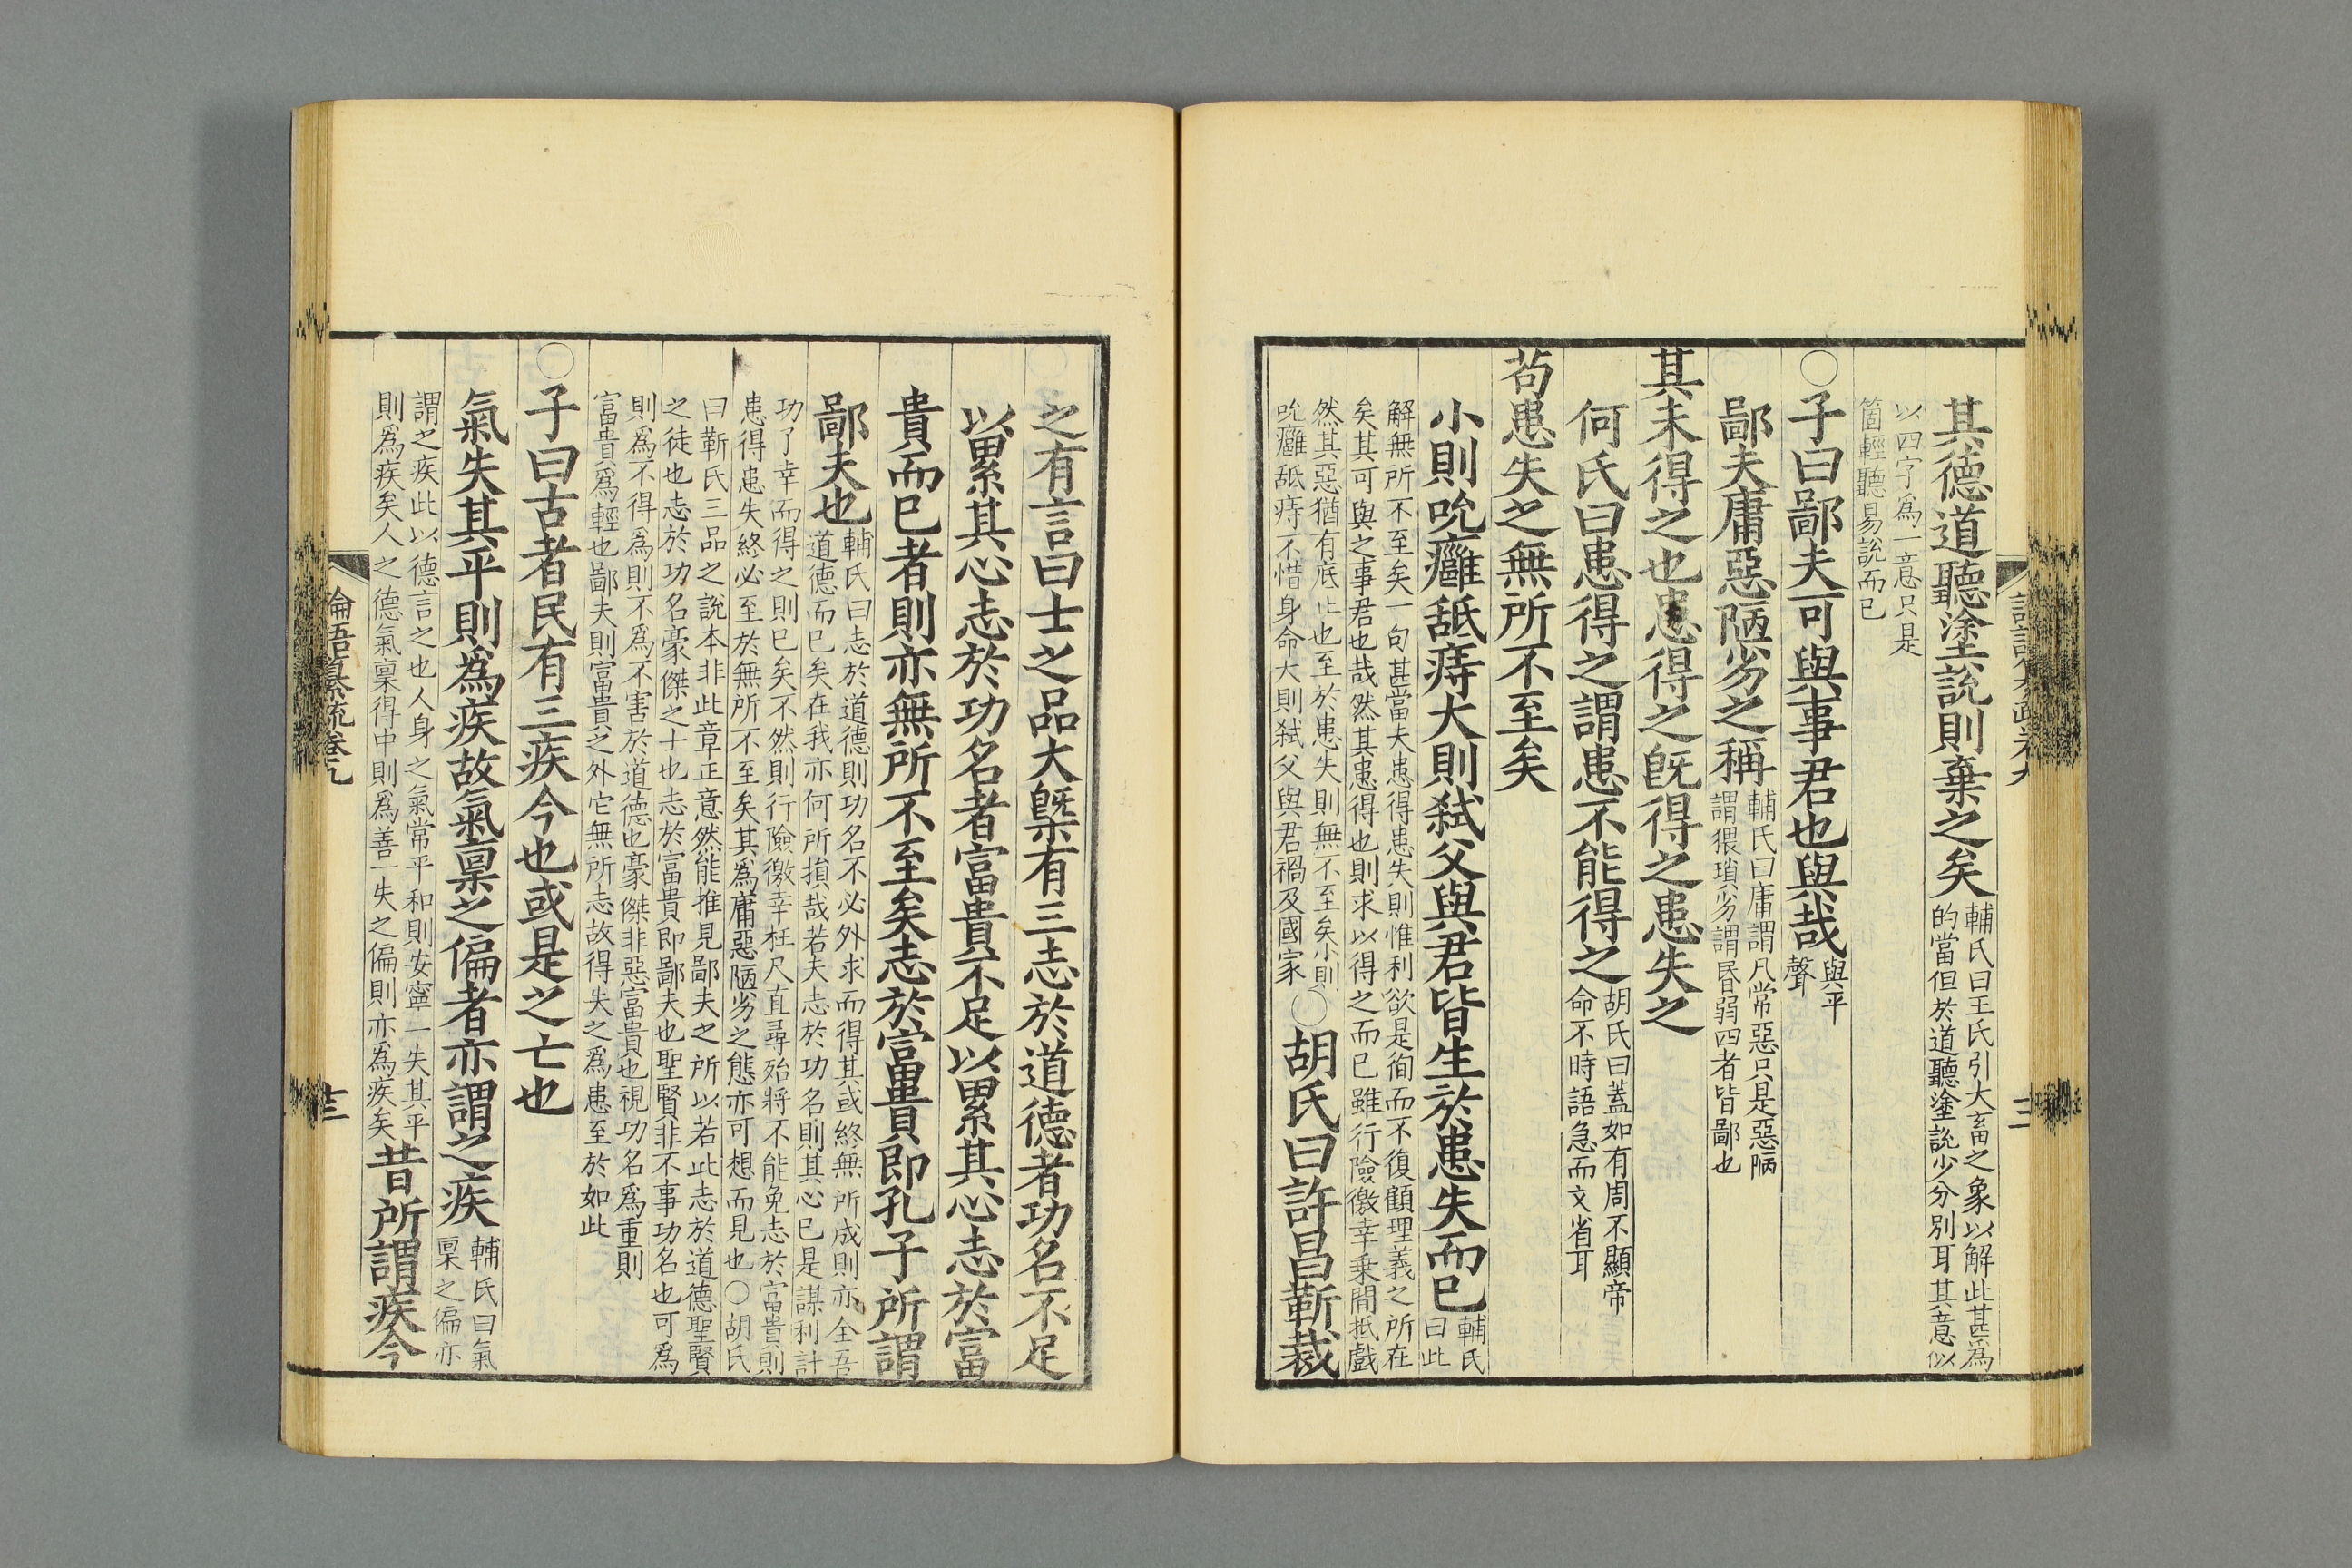 其德道聽塗說則棄之矣輔氏曰王氏引大畜之象以解此甚為
的當但於道聽塗說少分別耳其意似
以四字爲一意只是
箇輕聽易說而已
○子曰鄙夫可與事君也與哉與平
聲
鄙夫庸惡陋劣之稱輔氏曰庸謂凡常惡只是惡陋
謂猥瑣劣謂昬弱四者皆鄙也
其未得之也患得之旣得之患失之
何氏曰患得之謂患不能得之胡氏曰蓋如有周不顯帝
命不時語急而文省耳
苟患失之無所不至矣
小則吮癰舐痔大則弒父與君皆生於患失而已輔氏
曰此
解無所不至矣一句甚當夫患得患失則惟利欲是徇而不復顧理義之所在
矣其可與之事君也哉然其患得也則求以得之而已雖行險徼幸乗間抵戲
然其惡猶有底止也至於患失則無不至矣小則
吮癰舐痔不惜身命大則弒父與君禍及國家○胡氏曰許昌靳裁
之有言曰士之品大槩有三志於道德者功名不足
以累其心志於功名者富貴不足以累其心志於富
貴而已者則亦無所不至矣志於富貴即孔子所謂
鄙夫也輔氏曰志於道德則功名不必外求而得其或終無所成則亦全吾
道德而已矣在我亦何所損哉若夫志於功名則其心已是謀利計
功了幸而得之則已矣不然則行險徼幸枉尺直尋殆將不能免志於富貴則
患得患失終必至於無所不至矣其爲庸惡陋劣之態亦可想而見也○胡氏
曰靳氏三品之說本非此章正意然能推見鄙夫之所以若此志於道德聖賢
之徒也志於功名豪傑之士也志於富貴即鄙夫也聖賢非不事功名也可爲
則爲不得爲則不爲不害於道德也豪傑非惡富貴也視功名爲重則
富貴爲輕也鄙夫則富貴之外它無所志故得失之爲患至於如此
○子曰古者民有三疾今也或是之亡也
氣失其平則爲疾故氣稟之偏者亦謂之疾輔氏曰氣
稟之偏亦
謂之疾此以德言之也人身之氣常平和則安寧一失其平
則爲疾矣人之德氣稟得中則爲善一失之偏則亦爲疾矣昔所謂疾今
論語纂疏卷九